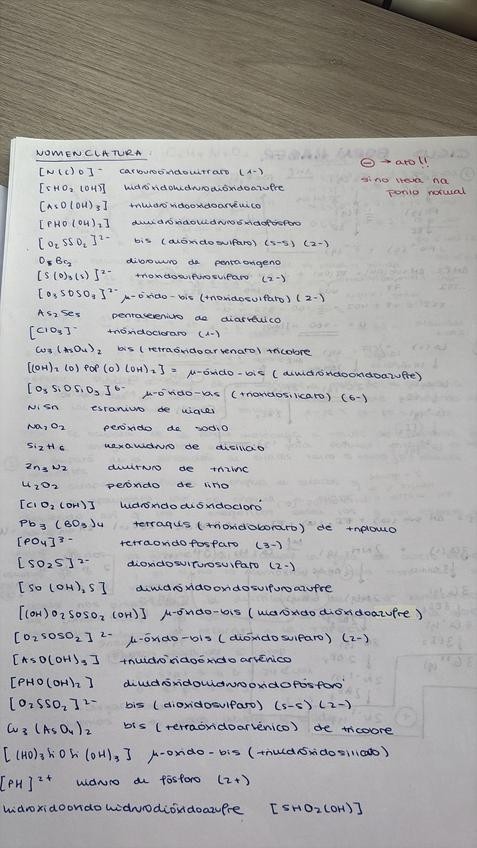 NOMENCLATURA
⊖ → ato!!
sino lleva na
ponlo normal
[N(C)O]⁻ carburoóxidonitrato (1-)
[SHO2(OH)] hidróxidohidrurodióxidoazufre
[AsO(OH)3] trihidróxidooxidoarsénico
[PHO(OH)2] dihidróxidohidruroóxidofósforo
[O2SSO2]²⁻ bis (dióxidosulfato) (S-S) (2-)
O5Br2 dibromuro de pentaoxigeno
[S(O)3(S)]²⁻ trioxidosulfurosulfato (2-)
[O3SOSO3]²⁻ μ-óxido-bis (trioxidosulfato) (2-)
As2Se5 pentaseleniuro de diarsénico
[ClO3]⁻ trióxidoclorato (1-)
Cu3(AsO4)2 bis (tetraóxidoarsenato) tricobre
[(OH)2(O)POP(O)(OH)2] = μ-óxido-bis (dihidróxidooxidoazufre)
[O3SiOSiO3]⁶⁻ μ-óxido-bis (trioxidosilicato) (6-)
NiSn estaniuro de niquel
Na2O2 peróxido de sodio
Si2H6 hexahidruro de disilicio
Zn3N2 dinitruro de trizinc
Li2O2 peróxido de litio
[ClO2(OH)] hidróxidodióxidocloro
Pb3(BO3)4 tetraquis (trioxidoborato) de triplomo
[PO4]³⁻ tetraoxidofosfato (3-)
[SO2S]²⁻ dioxidosulfurosulfato (2-)
[SO(OH)2S] dihidróxidooxidosulfuroazufre
[(OH)O2SOSO2(OH)] μ-óxido-bis (hidróxidodióxidoazufre)
[O2SOSO2]²⁻ μ-óxido-bis (dióxidosulfato) (2-)
[AsO(OH)3] trihidróxidoóxidoarsénico
[PHO(OH)2] dihidróxidohidruroóxidofósforo
[O2SSO2]²⁻ bis (dioxidosulfato) (S-S) (2-)
Cu3(AsO4)2 bis (tetraóxidoarsénico) de tricobre
[(HO)3SiOSi(OH)3] μ-oxido-bis (trihidróxidosilicato)
[PH]²⁺ hidruro de fósforo (2+)
hidroxidooxidohidrurodióxidoazufre [SHO2(OH)]